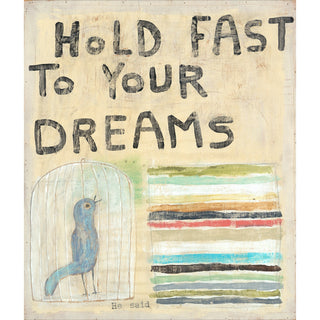 HoLD FAST
To YouR
DREAMS
He said